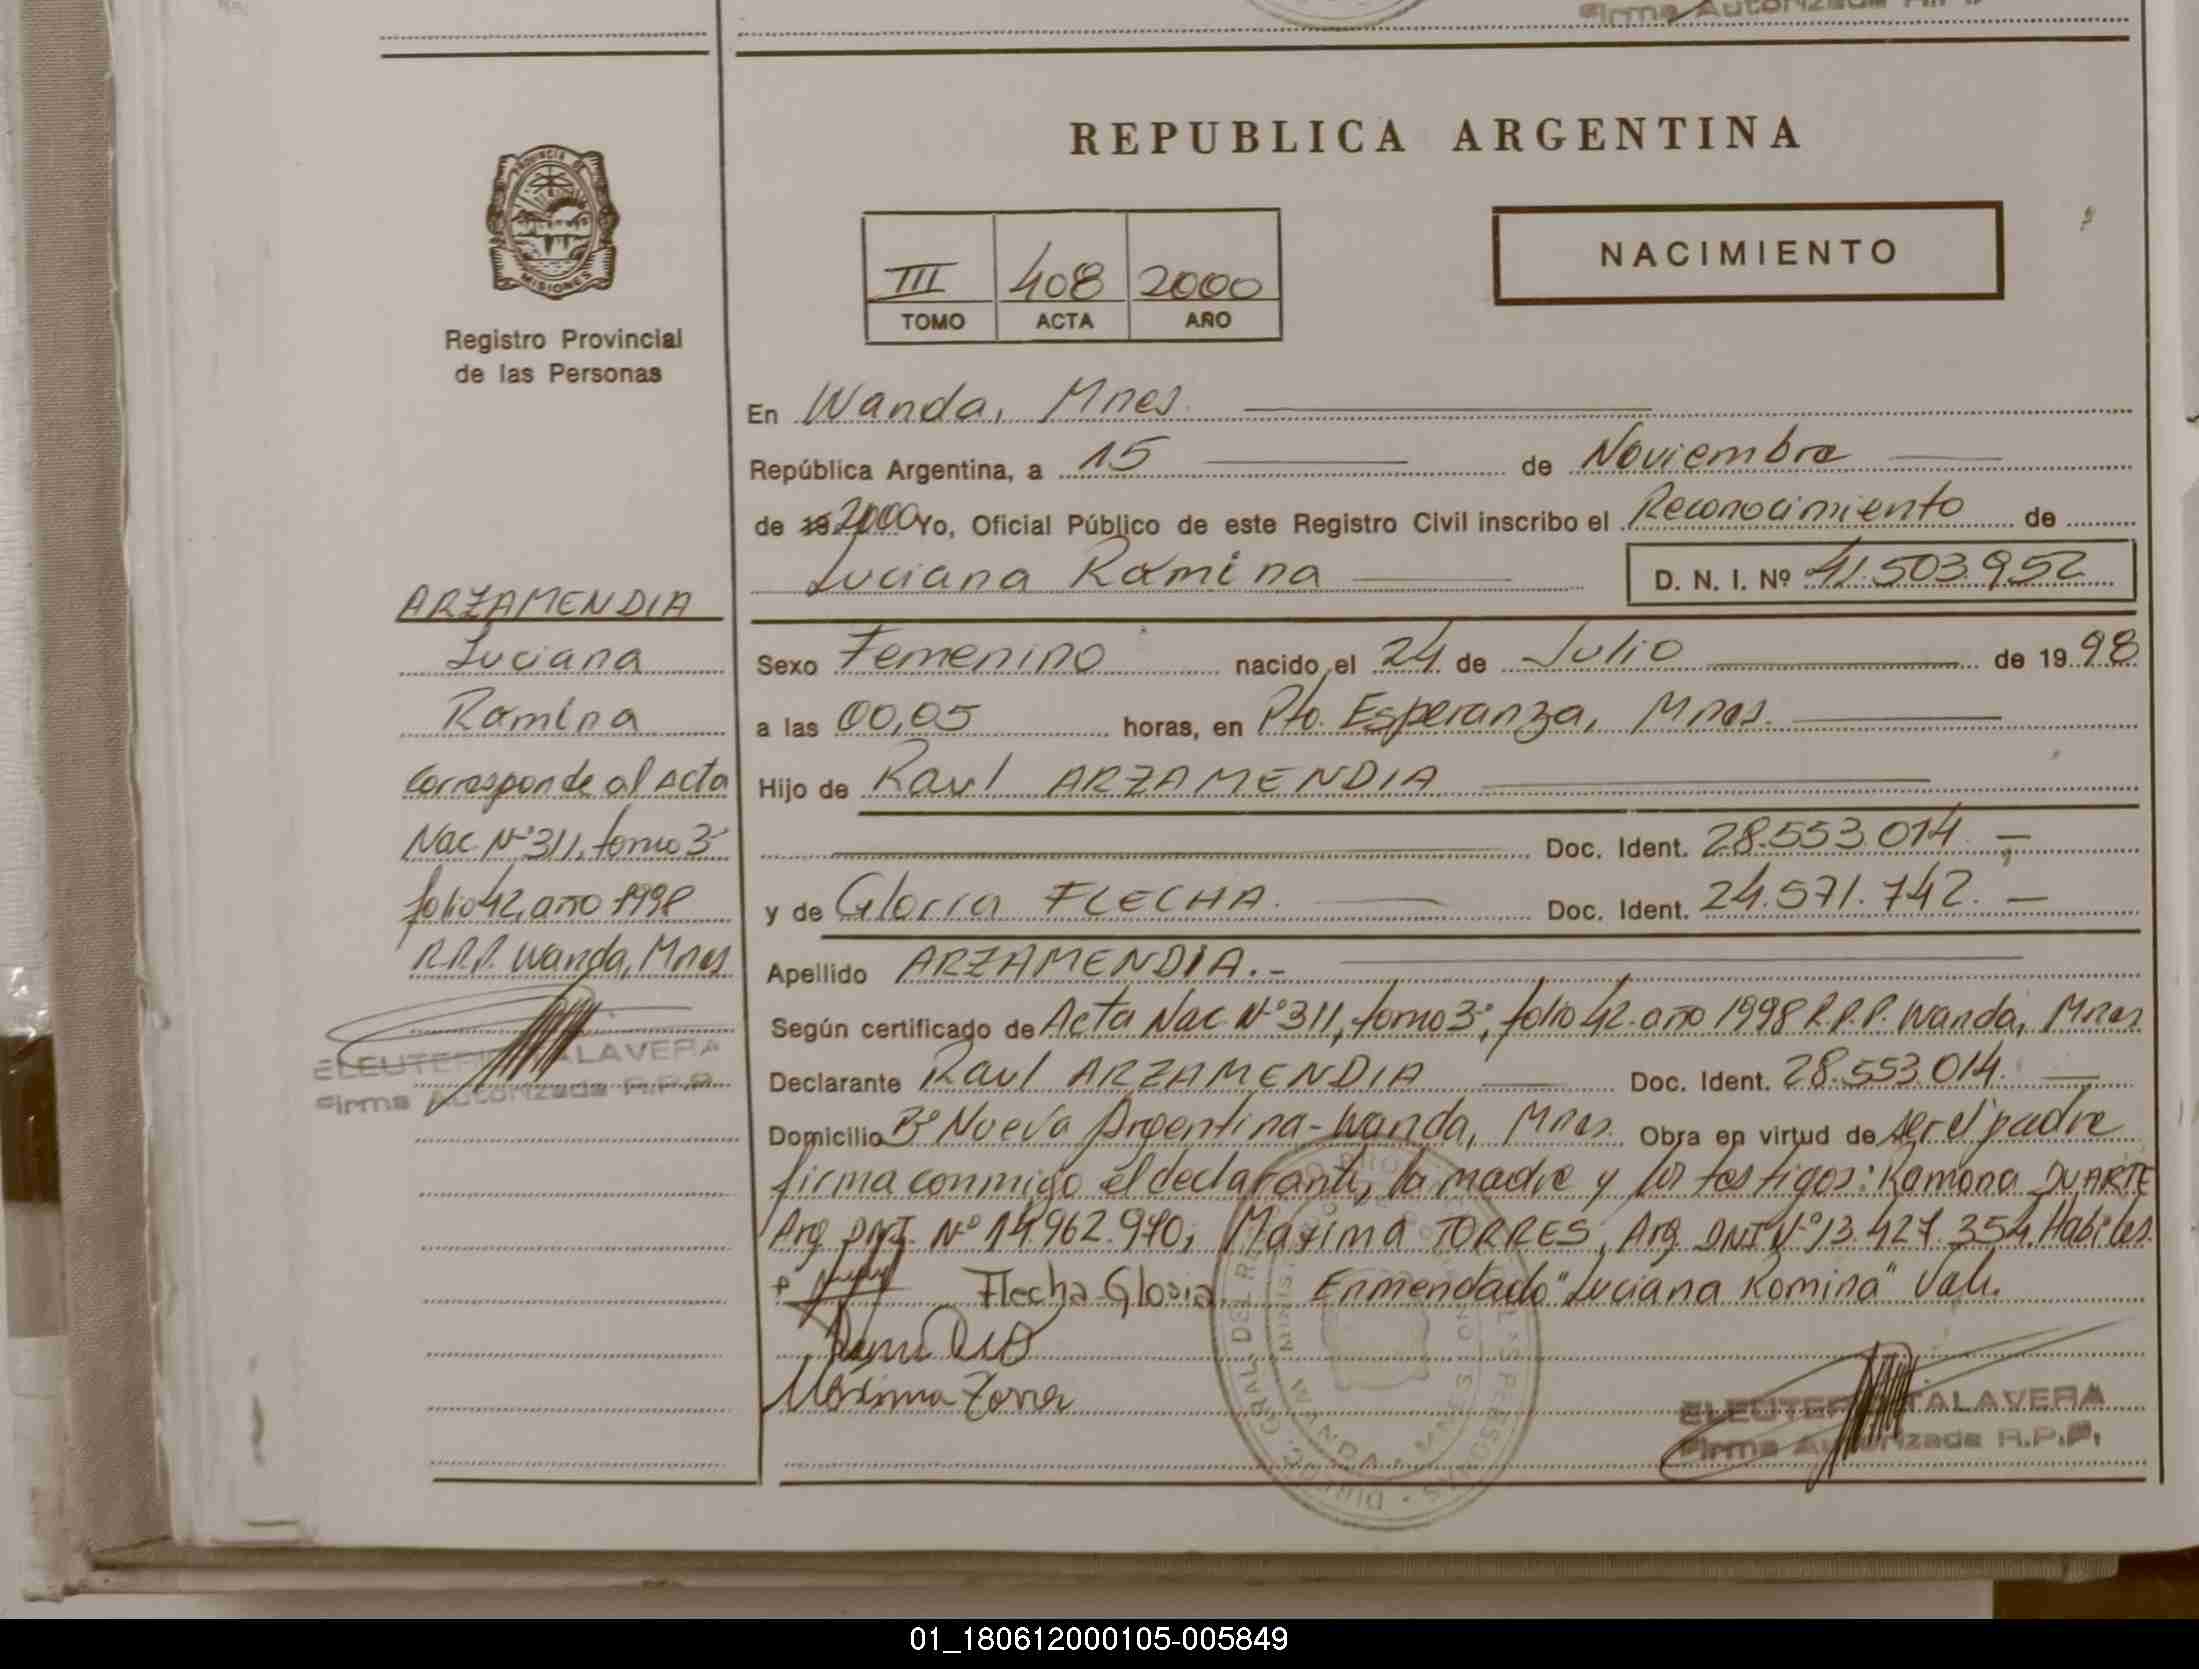 Firma Autorizada R.P.P.
PROVINCIA DE
MISIONES
Registro Provincial
de las Personas
REPUBLICA ARGENTINA
NACIMIENTO
III 408 2000
TOMO ACTA AÑO
En Wanda, Mnes.
República Argentina, a 15 de Noviembre
de 19 2000 Yo, Oficial Público de este Registro Civil inscribo el Reconocimiento de
Luciana Romina D. N. I. Nº 41.503.952
Sexo Femenino nacido el 24 de Julio de 1998
a las 00,05 horas, en Pto. Esperanza, Mnes.
Hijo de Raul ARZAMENDIA
Doc. Ident. 28.553.014
y de Gloria FLECHA. Doc. Ident. 24.571.742.
Apellido ARZAMENDIA.-
Según certificado de Acta Nac. Nº 311, tomo 3º, folio 42. año 1998 R.P.P. Wanda, Mnes
Declarante Raul ARZAMENDIA Doc. Ident. 28.553.014.
Domicilio Bº Nueva Argentina-Wanda, Mnes. Obra en virtud de ser el padre
firma conmigo el declarante, la madre y los testigos: Ramona DUARTE
Arg. DNI. Nº 14.962.970, Maxima TORRES, Arg. DNI Nº 13.427.354. Habiles.
Flecha Gloria. Enmendado "Luciana Romina" Vale.
Maxima Torres
ELEUTERIO TALAVERA
Firma Autorizada R.P.P.
ARZAMENDIA
Luciana
Romina
Corresponde al Acta
Nac. Nº 311, tomo 3º
folio 42, año 1998
R.P.P. Wanda, Mnes
ELEUTERIO TALAVERA
Firma Autorizada R.P.P.
01_180612000105-005849